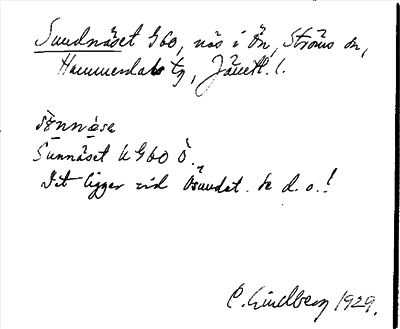 Sundnäset G60, näs i Ön, Ströms sn,
Hammerdals tg, Jämtl. l.
sŏnnäse
Sunnäset k G60 Ö.
Det ligger vid Ösundet. Se d. o.!
C. Lindberg 1929.